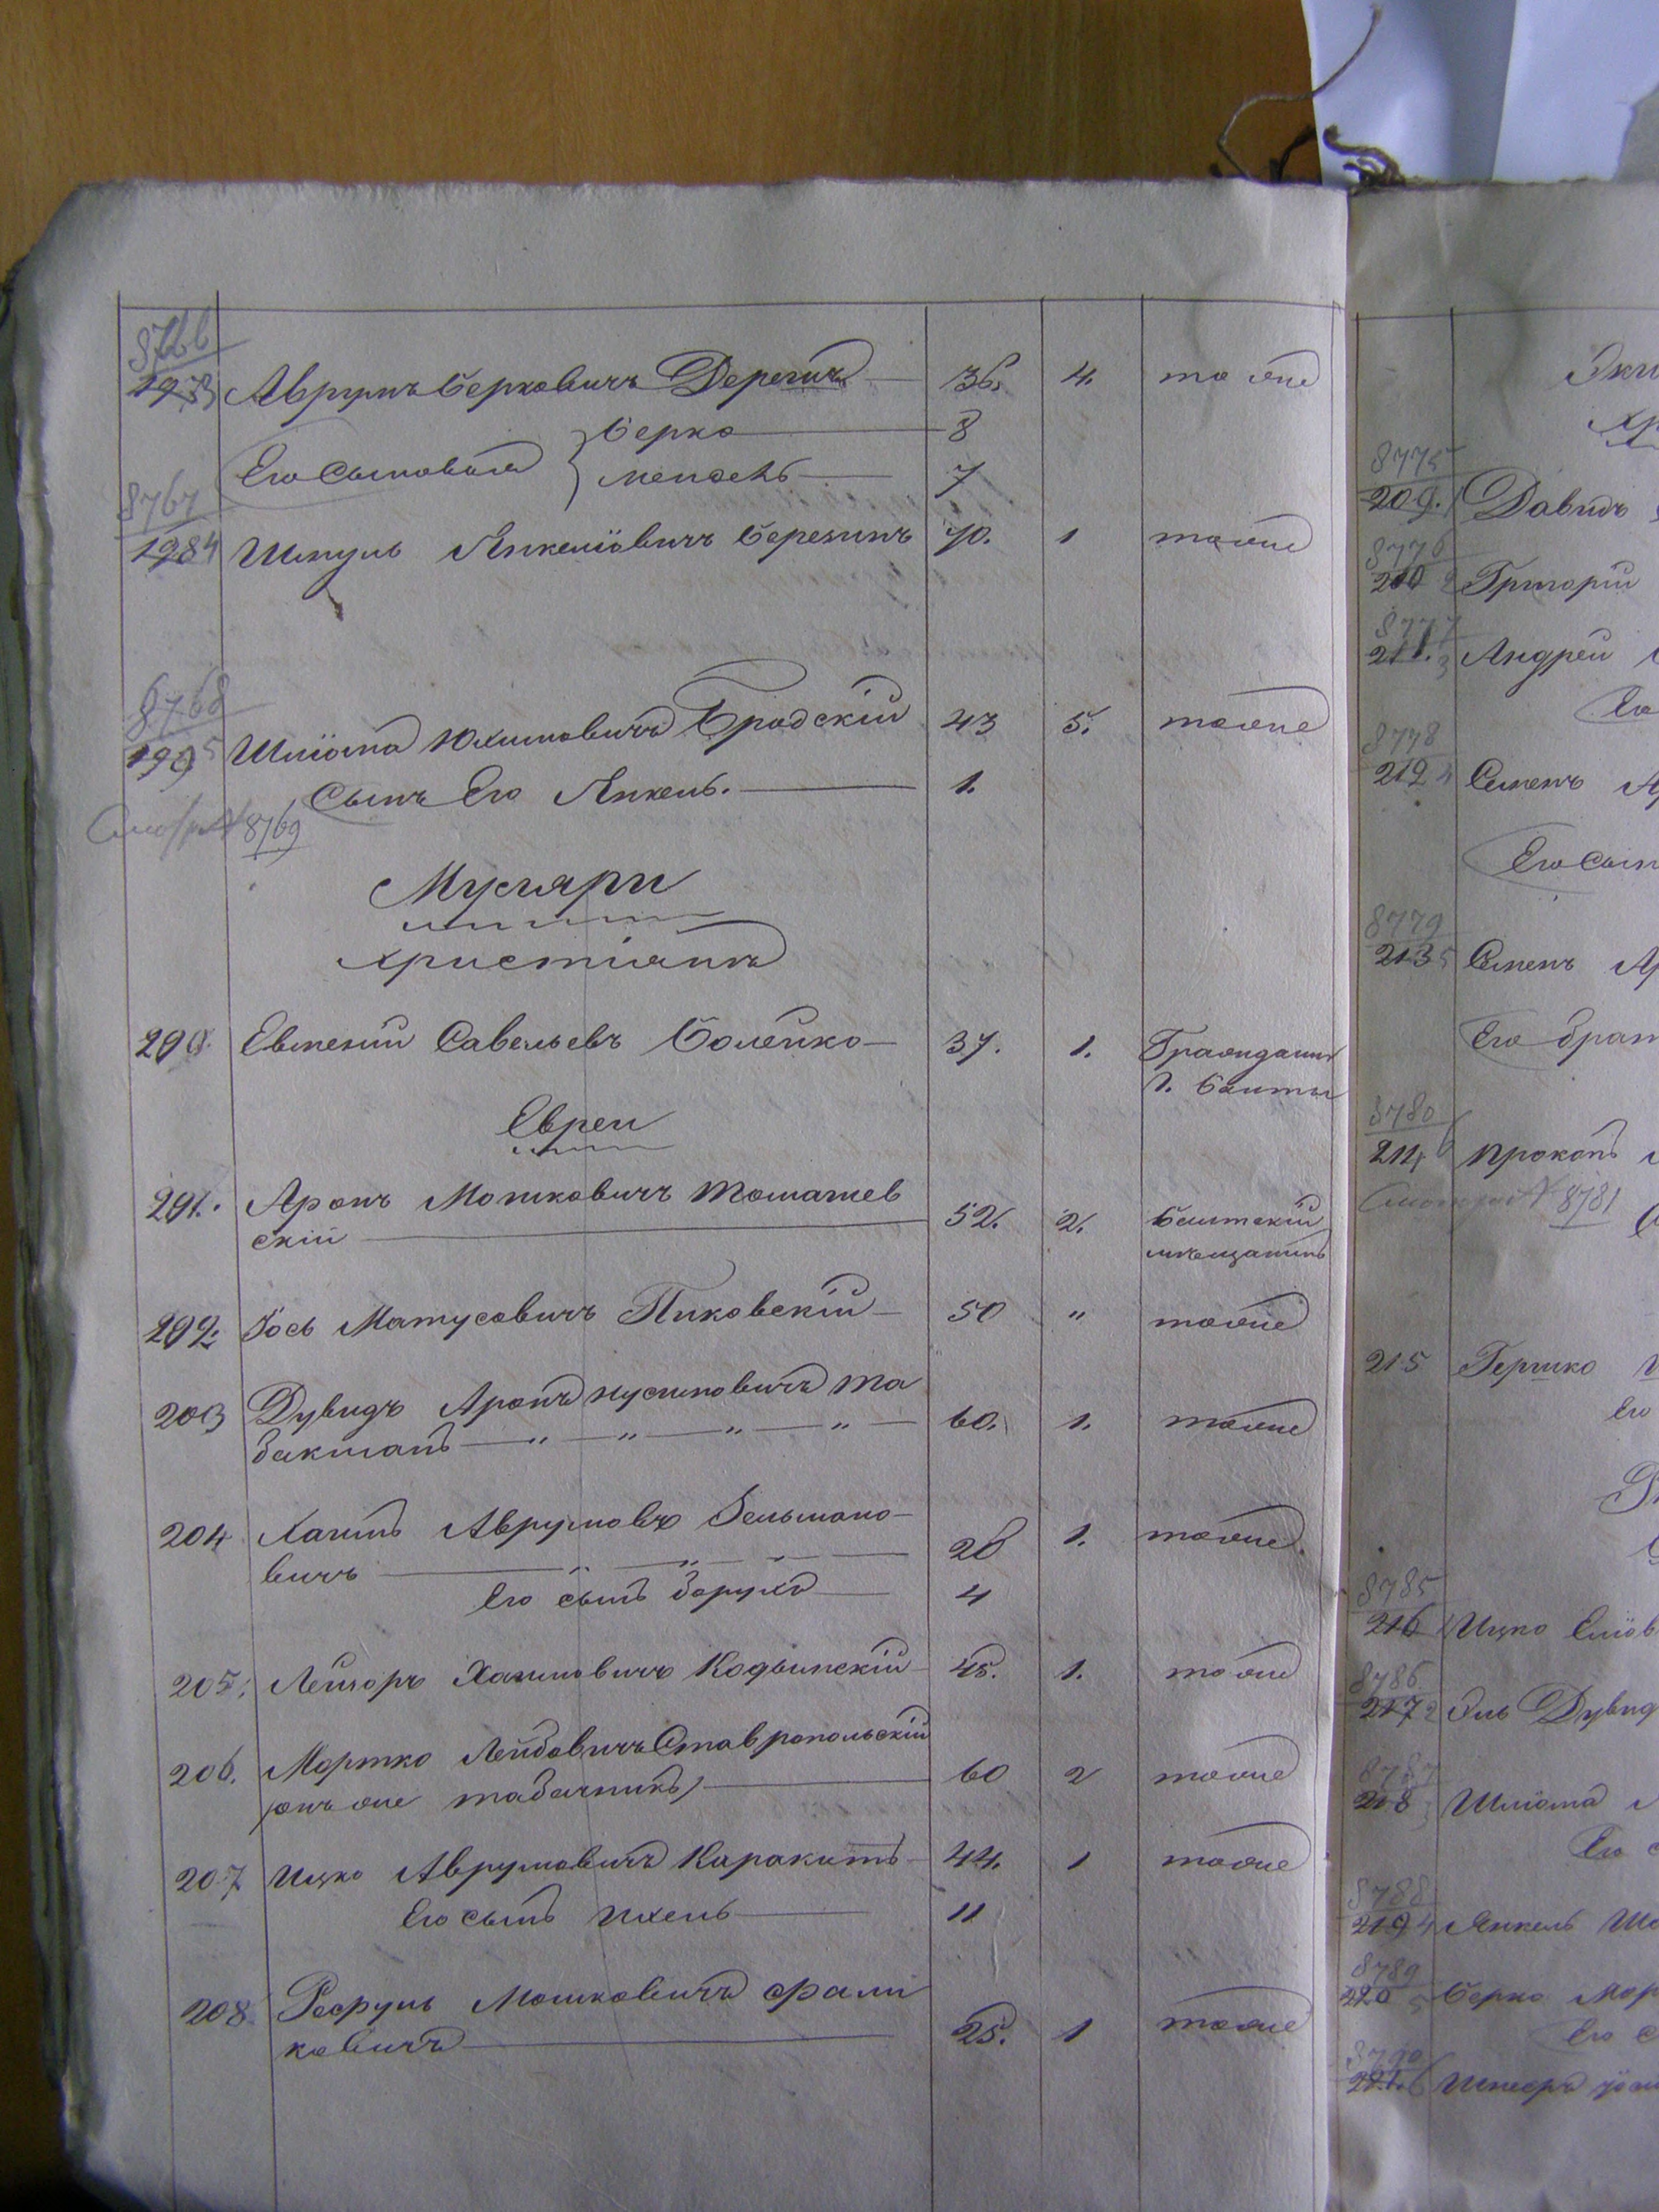 8766
198 3 Аврумъ Берковичъ Дерегичъ — 36. 4. тоже
Его Сыновья } Берко — 8
Мендель — 7
8767
198 4 Шмуль Янкелiовичъ Березинъ 40. 1 тоже
8768
199 5 Шлiома Юхимовичъ Бродскiй 43 5. тоже
Сынъ Его Янкель. — 1.
Смотри № 8769
Музляри
Христiанъ
200. Евгенiй Савельевъ Болейко — 37. 1. Гражданинъ
г. Балты
Евреи
201. Аронъ Мошковичъ Томашев
скiй — 52. 2. Балтскiй
мѣщанинъ
202. Iось Матусовичъ Пиковскiй — 50 " тоже
203 Дувидъ Аронъ Нусимовичъ Та
бакманъ — " — " — " — " — 60. 1. тоже
204 Хаимъ Аврумовъ Зельмано-
вичъ — 28 1. тоже.
Его сынъ Борухъ — 4
205. Лейзоръ Хаимовичъ Кодыпскiй — 45. 1. тоже
206. Мортко Лейбовичъ Ставропольскiй
(онъ же табачникъ) — 60 2 тоже
207 Ицко Аврумовичъ Каракитъ — 44. 1 тоже
Его сынъ Ихель — 11
208. Мошковичъ Срали
ковичъ — 25. 1 тоже
8775
209. 1 Давидъ
8776
210 2 Григорiй
8777
211. 3 Андрей
Его
8778
212 4 Семенъ
Его Сын
8779
213 5 Семенъ
Его брат
8780
214 6 Прокопъ
Смотри № 8781
215 Гершко
Его
8785
216 1 Ицко Елiов
8786
217 2 Эль Дувид
8787
218 3 Шлiома
Его с
8788
219 4 Янкель
8789
220 5 Берко Мор
Его с
8790
221. 6